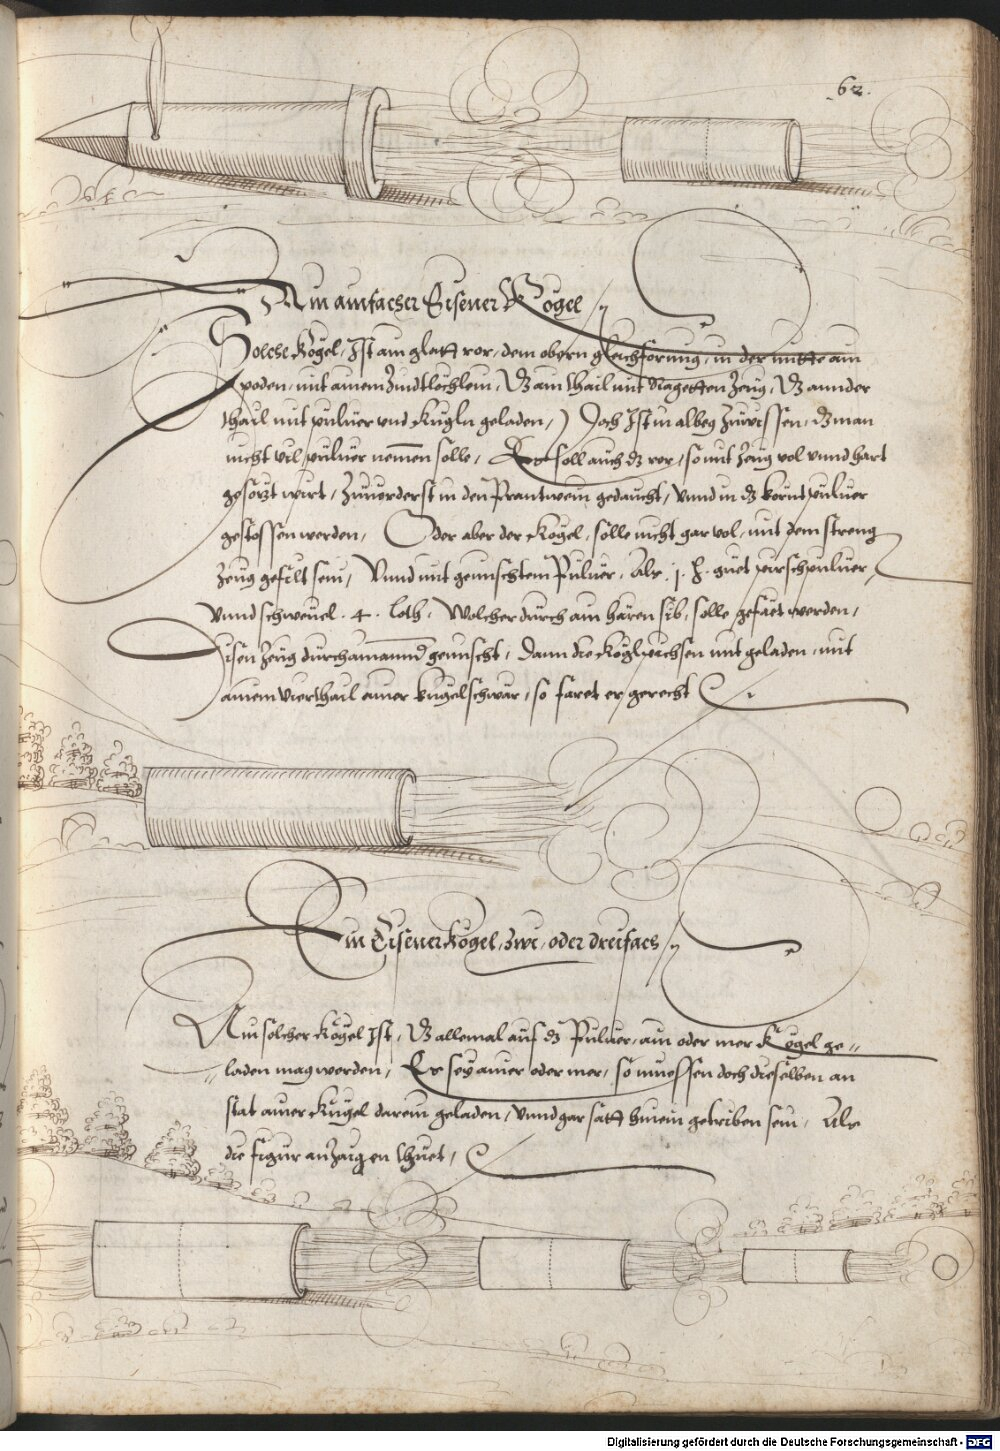 62.
Ain ainfacher Eisener Kogel
Solche Kogel, Ist ain glatt ror, dem obern gleichformig, in der mitte ain
poden, mit ainem Zindtlochlein, Dz ain thail mit Zeug, Dz annder
thail mit puluer vnd Kugln geladen, Doch Ist in albeg Zuwissen, dz man
nicht vil puluer nemen solle, Er soll auch dz ror, so mit Zeug vol vnnd hart
gesetzt wirt, Zuuorderst in den Prantwein gedaucht, vnnd in dz kornt puluer
gestossen werden, Oder aber der Kogel, solle nicht gar vol, mit dem streng
Zeug gefilt sein, Vnnd mit gemischtem Puluer, Als .j. guet pirschpuluer,
vnnd schweuel . 4 . loth, Wolcher durch ain hären sib, solle gefäet werden,
disen Zeug durchainannd gemischt, Dann die Kogl pichsen mit geladen, mit
ainem vierthail ainer kugel schwär, so faret er gerecht
Ein Eisener Kogel, zwi, oder dreifach
Ain solcher Kogel Ist, Dz allemal auf dz Puluer, ain oder mer Kogel ge=
=laden mag werden, Er sey ainer oder mer, so muessen doch dieselben an
stat ainer Kugel darein geladen, vnnd gar satt hinein getriben sein, Als
die figur anZaigen thuet,
Digitalisierung gefördert durch die Deutsche Forschungsgemeinschaft - DFG